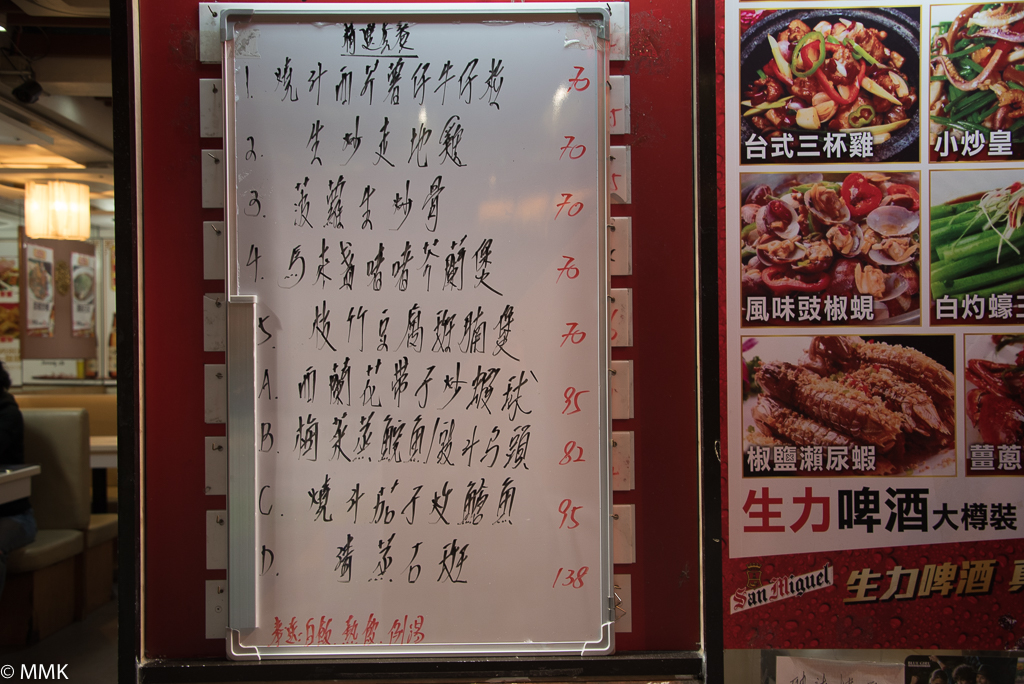 精選套餐
1. 燒汁西芹薯仔牛仔粒 70
2. 生炒走地雞 70
3. 菠蘿生炒骨 70
4. 馬拉盞啫啫芥蘭煲 70
5. 枝竹豆腐斑腩煲 70
A. 西蘭花帶子炒蝦球 95
B. 梅菜蒸鯇魚/豉汁烏頭 82
C. 燒汁茄子炆鱔魚 95
D. 清蒸石斑 138
套送:白飯, 熱飲, 例湯
台式三杯雞
小炒皇
風味豉椒蜆
白灼蠔
椒鹽瀨尿蝦
薑蔥
生力啤酒大樽裝
San Miguel 生力啤酒
© MMK